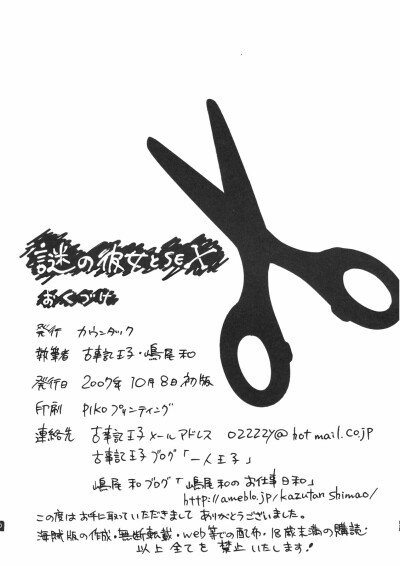 謎の彼女とSEX
おくづけ
発行 カウンタック
執筆者 古事記王子・嶋尾和
発行日 2007年10月8日初版
印刷 PIKOプリンティング
連絡先 古事記王子メールアドレス 02222y@hotmail.co.jp
古事記王子ブログ「一人王子」
嶋尾和ブログ「嶋尾和のお仕事日和」
http://ameblo.jp/kazutanshimao/
この度はお手に取っていただきまして ありがとうございました。
海賊版の作成・無断転載・web等での配布・18歳未満の購読・
以上全てを禁止いたします!